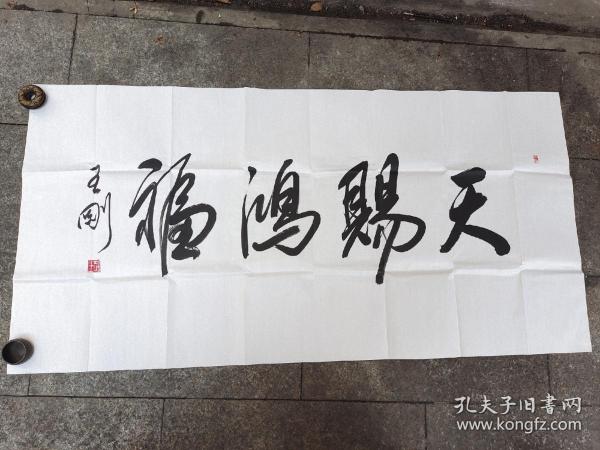 天赐鸿福
王刚
孔夫子旧書网
www.kongfz.com